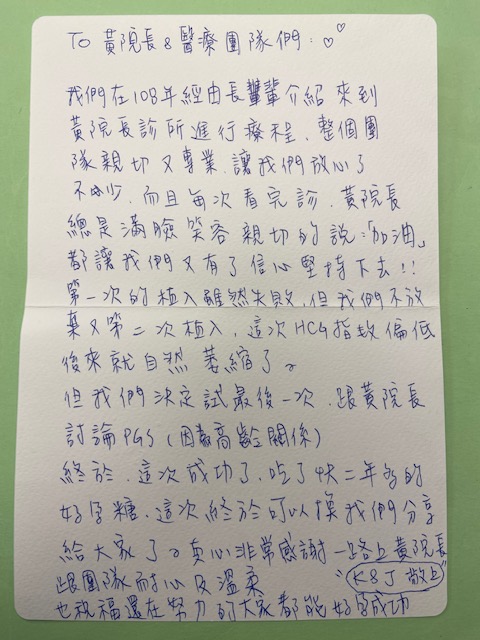 To 黃院長 & 醫療團隊們：♡♡
我們在108年經由長輩介紹來到
黃院長診所進行療程，整個團
隊親切又專業，讓我們放心了
不少，而且每次看完診，黃院長
總是滿臉笑容親切的說：「加油」
都讓我們又有了信心堅持下去!!
第一次的植入雖然失敗，但我們不放
棄又第二次植入，這次HCG指數偏低
後來就自然萎縮了。
但我們決定試最後一次，跟黃院長
討論PGS（因為高齡關係）
終於，這次成功了，吃了快二年多的
好孕糖，這次終於可以換我們分享
給大家了。真心非常感謝一路上黃院長
跟團隊耐心及溫柔
"K&J 敬上"
也祝福還在努力的大家都能好孕成功